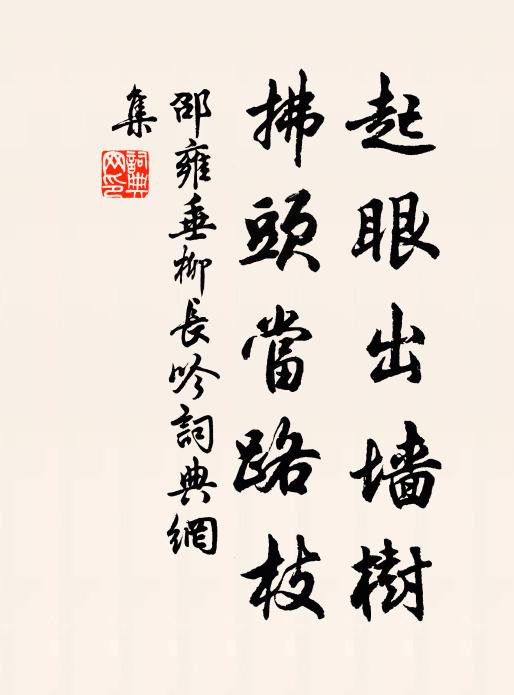 起眼出墻樹
拂頭當路枝
邵雍垂柳長吟詞典網
集
詞典
网印